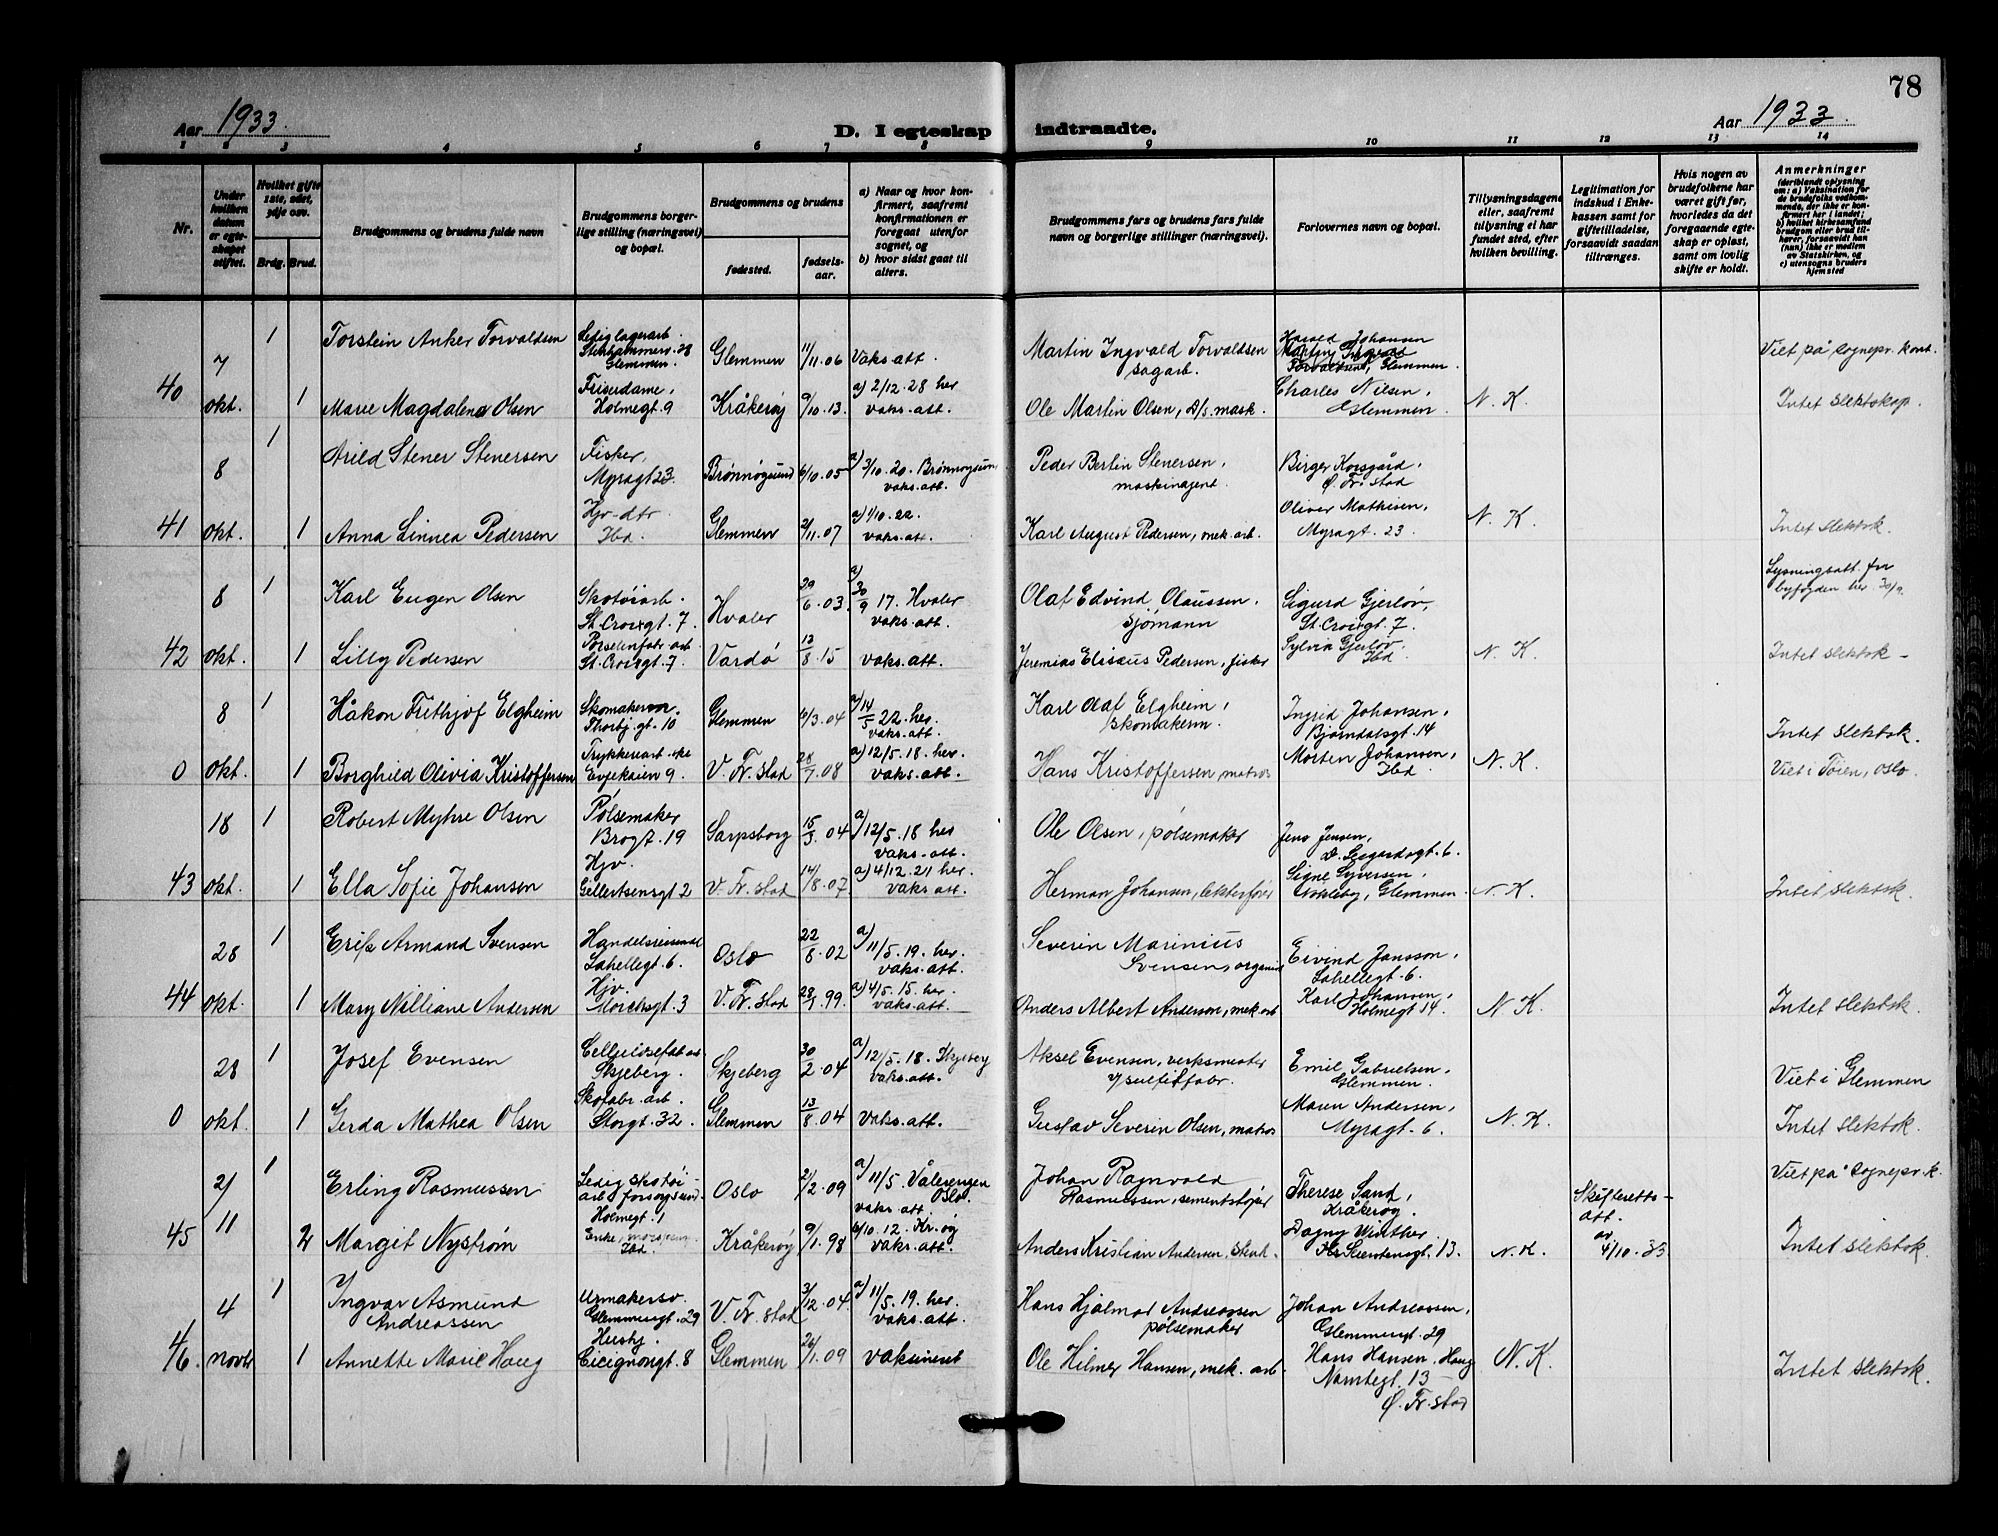 78
Aar 1933.
D. I egteskap indtraadte.
Aar 1933.
1 2 3 4 5 6 7 8 9 10 11 12 13 14
Nr.
Under hvilken datum er egteskapet stiftet.
Hvilket gifte 1ste, 2det, 3dje osv.
Brdg. Brud.
Brudgommens og brudens fulde navn
Brudgommens borgerlige stilling (næringsvei) og bopæl.
Brudgommens og brudens
fødested.
fødselsaar.
a) Naar og hvor konfirmert, saafremt konfirmationen er foregaat utenfor sognet, og
b) hvor sidst gaat til alters.
Brudgommens fars og brudens fars fulde navn og borgerlige stillinger (næringsvei).
Forlovernes navn og bopæl.
Tillysningsdagene eller, saafremt tilysning ei har fundet sted, efter hvilken bevilling.
Legitimation for indskud i Enkekassen samt for giftetilladelse, forsaavidt saadan tiltrænges.
Hvis nogen av brudefolkene har været gift før, hvorledes da det foregaaende egteskap er opløst, samt om lovlig skifte er holdt.
Anmerkninger
(deriblandt oplysning om: a) Vaksination for de brudefolks vedkommende, der ikke er konfirmert her i landet; b) hvilket kirkesamfund brudgom eller brud tilhører, forsaavidt han (hun) ikke er medlem av Statskirken, og c) utensogns bruders hjemsted
7 1 Torstein Anker Torvaldsen Ledig lagerarb. Glemmen. Glemmen 11/11.06 Vaks.att. Martin Ingvald Torvaldsen sagarb. Harald Johansen Glemmen. Viet på sognepr. kont.
40 okt. 1 Marie Magdalena Olsen Friserdame, Holmegt. 9 Kråkerøy 9/10.13. a) 2/12.28 her vaks.att. Ole Martin Olsen, D/s. mask. Charles Nilsen, Glemmen. N. K. Intet slektskap.
8 1 Arild Stener Stenersen Fisker, Myragt 23. Brønnøysund 6/10.05 a) 3/10.20. Brønnøysund vaks.att. Peder Bertin Stenersen, maskinagent Birger Korsgård, Ø. Fr.stad
41 okt. 1 Anna Linnea Pedersen Hjv. dtr. Ibd. Glemmen 2/11.07 a) 1/10.22. vaks.att. Karl August Pedersen, mek. arb. Oliver Mathisen, Myragt. 23. N. K. Intet slektsk.
8 1 Karl Eugen Olsen Skotøiarb. St. Croixgt. 7. Hvaler 29/6.03 a) 30/9 17. Hvaler vaks.att. Olaf Edvind Olaussen, sjømann Sigurd Gjerløv, St. Croixgt. 7 Lysningsatt. fra byfogden her 30/9.
42 okt. 1 Lilly Pedersen Porselenfabr. arb. St. Croixgt. 7 Vardø 13/8.15 vaks.att. Jeremias Eliseus Pedersen, fisker Sylvia Gjerløv Ibd. N. K. Intet slektsk.
8 1 Håkon Frithjof Elgheim Skomakersv. Thorbj.gt. 10 Glemmen 6/3.04 a) 14/5 22. her. vaks.att. Karl Olaf Elgheim, skomakerm. Ingrid Johansen, Bjørndalsgt. 14 Intet slektsk.
0 okt. 1 Borghild Olivia Kristoffersen Trykkeriarb.ske Evjekaien 9. V. Fr.stad 28/7.08 a) 12/5.18. her. vaks.att. Hans Kristoffersen, matros Morten Johansen, Ibd. N. K. Viet i Tøien, Oslo.
18 1 Robert Myhre Olsen Pølsemaker Brogt. 19 Sarpsborg 15/3.04 a) 12/5.18 her vaks.att. Ole Olsen, pølsemaker Jens Jensen,
43 okt. 1 Ella Sofie Johansen Hjv. Gellertsensgt 2 V. Fr.stad 14/8.07 a) 4/12.21 her. vaks.att. Herman Johansen, lekterfører Signe Syversen, Glemmen. N. K. Intet slektsk.
28 1 Erik Armand Svensen Handelsreisende Lahellegt. 6. Oslo 22/8.02 a) 11/5.19. her. vaks.att. Severin Marinius Svensen, organist Eivind Jansson, Lahellegt. 6.
44 okt. 1 Mary Nilliane Andersen Hjv. Morchsgt. 3 V. Fr.stad 28/1.99. a) 4/5.15. her. vaks.att. Anders Albert Anderson, mek. arb Karl Johansen, Holmegt 54. N. K. Intet slektsk.
28 1 Josef Evensen Cellulosefab.arb. Skjeberg. Skjeberg 30/2.04 a) 12/5.18. Skjeberg vaks.att. Aksel Evensen, verksmester v/ sulfitfabr. Emil Gabrielsen, Glemmen. Viet i Glemmen
0 okt. 1 Gerda Mathea Olsen Skofabr. arb. Storgt. 32. Glemmen 13/8.04 vaks.att. Gustav Severin Olsen, matros Maren Andersen, Myragt. 6. N. K. Intet slektsk.
2/ 1 Erling Rasmussen Ledig skotøiarb. Holmegt. 1 Oslo 21/2.09 a) 11/5. Vålerengen Oslo. vaks.att. Johan Ragnvald Rasmussen, sementstøper Therese Sand, Kråkerøy. Skifteretts-att. av 4/10.33 Viet på sognepr.k.
45 11 2 Margit Nystrøm Enke, Ibd. Kråkerøy 9/1.98 6/10.12. Kr.øy vaks.att. Anders Kristian Andersen, Dagny Winther N. K. Intet slektsk.
4 1 Ingvar Asmund Andreassen Urmakersv. Glemmengt. 29 V. Fr.stad 3/12.04. a) 11/5.19. her. vaks.att. Hans Hjalmar Andreassen pølsemaker Johan Andreassen, Glemmengt. 29
46. novbr 1 Annette Marie Haug Hushj. Cicignongt. 8 Glemmen 26/1.09 vaksineret Ole Hilmer Hansen, mek. arb. Hans Hansen Haug 13 Ø. Fr.stad N. K. Intet slektsk.